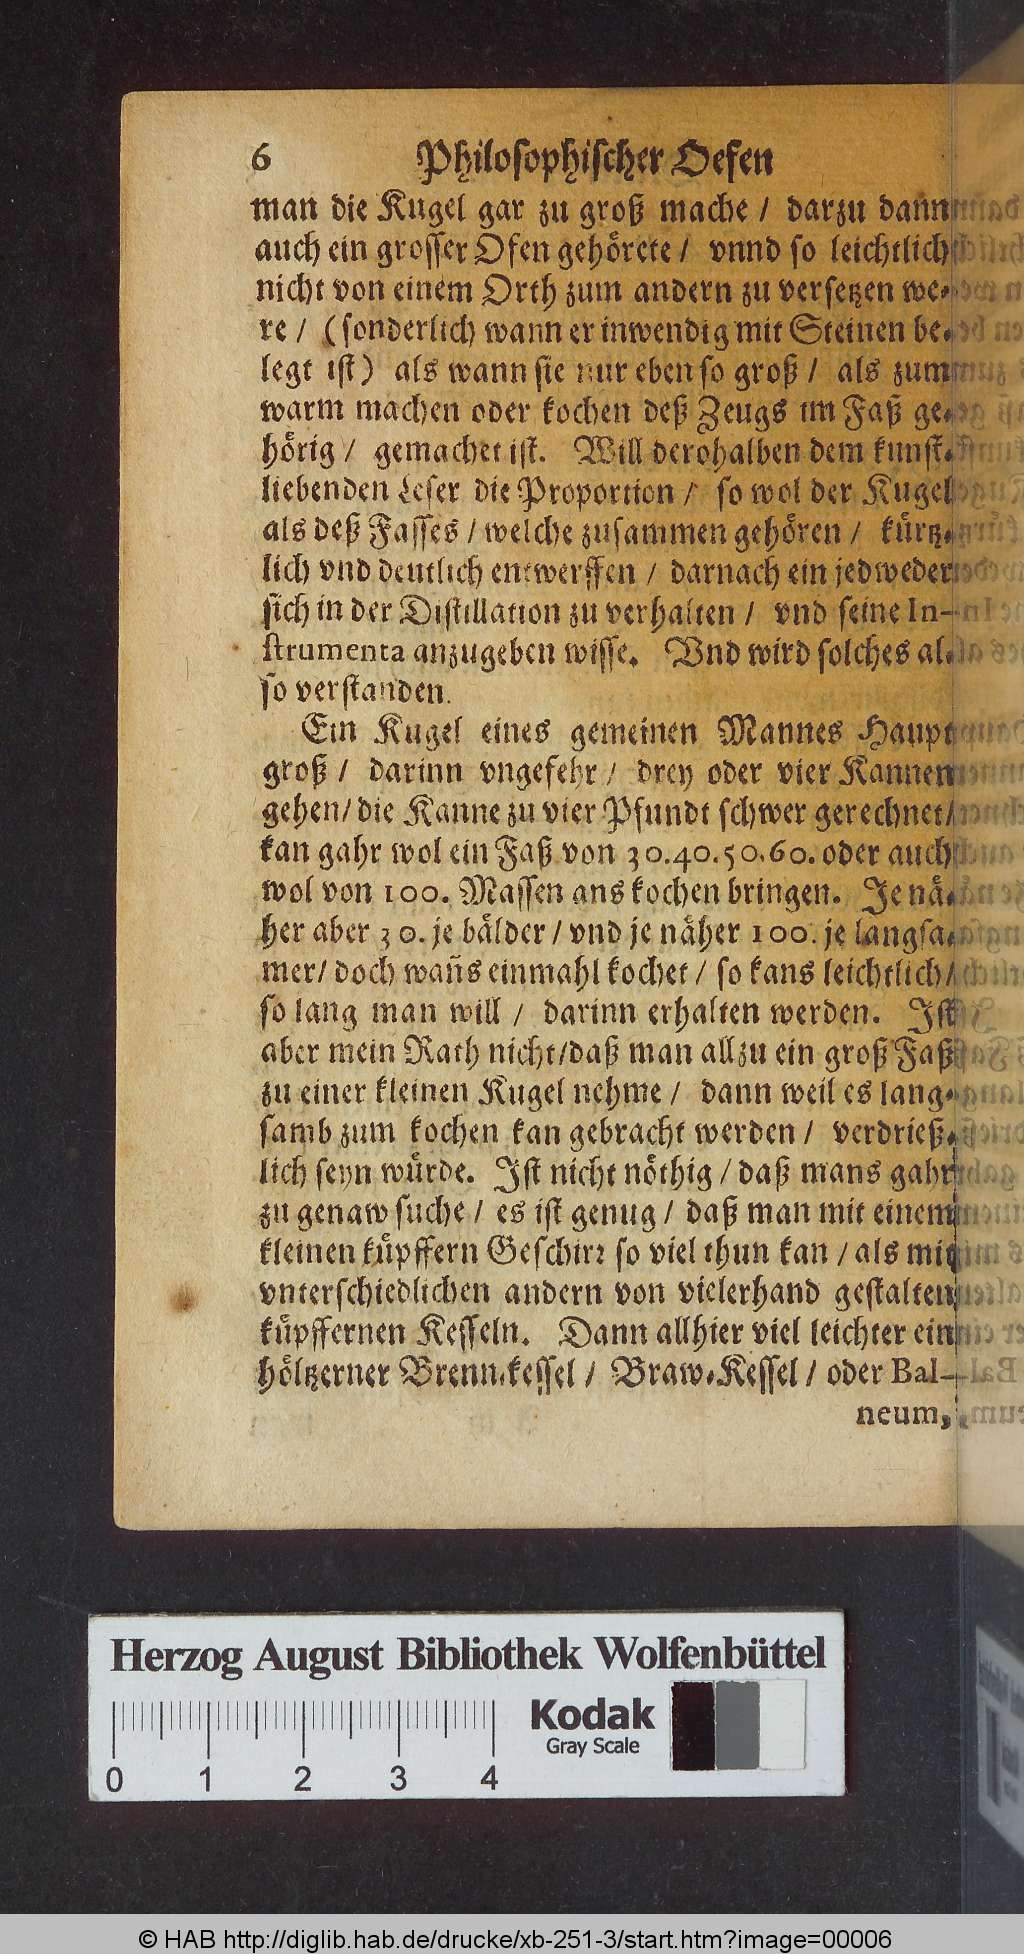 6 Philosophischer Oefen
man die Kugel gar zu groß mache / darzu dann
auch ein grosser Ofen gehörete / vnnd so leichtlich
nicht von einem Orth zum andern zu versetzen we-
re / (sonderlich wann er inwendig mit Steinen be-
legt ist) als wann sie nur eben so groß / als zum
warm machen oder kochen deß Zeugs im Faß ge-
hörig / gemachet ist. Will derohalben dem kunst-
liebenden Leser die Proportion / so wol der Kugel
als deß Fasses / welche zusammen gehören / kürtz-
lich vnd deutlich entwerffen / darnach ein jedweder
sich in der Distillation zu verhalten / vnd seine In-
strumenta anzugeben wisse. Vnd wird solches al-
so verstanden.
Ein Kugel eines gemeinen Mannes Haupt
groß / darinn vngefehr / drey oder vier Kannen
gehen / die Kanne zu vier Pfundt schwer gerechnet /
kan gahr wol ein Faß von 30. 40. 50. 60. oder auch
wol von 100. Massen ans kochen bringen. Je nä-
her aber 30. je bälder / vnd je näher 100. je langsa-
mer / doch wañs einmahl kochet / so kans leichtlich /
so lang man will / darinn erhalten werden. Ist
aber mein Rath nicht / daß man allzu ein groß Faß
zu einer kleinen Kugel nehme / dann weil es lang-
samb zum kochen kan gebracht werden / verdrieß-
lich seyn würde. Ist nicht nöthig / daß mans gahr
zu genaw suche / es ist genug / daß man mit einem
kleinen küpffern Geschirr so viel thun kan / als mit
vnterschiedlichen andern von vielerhand gestalten
küpffernen Kesseln. Dann allhier viel leichter ein
höltzerner Brenn-kessel / Braw-Kessel / oder Bal-
neum,
Herzog August Bibliothek Wolfenbüttel
Kodak
Gray Scale
0 1 2 3 4
© HAB http://diglib.hab.de/drucke/xb-251-3/start.htm?image=00006